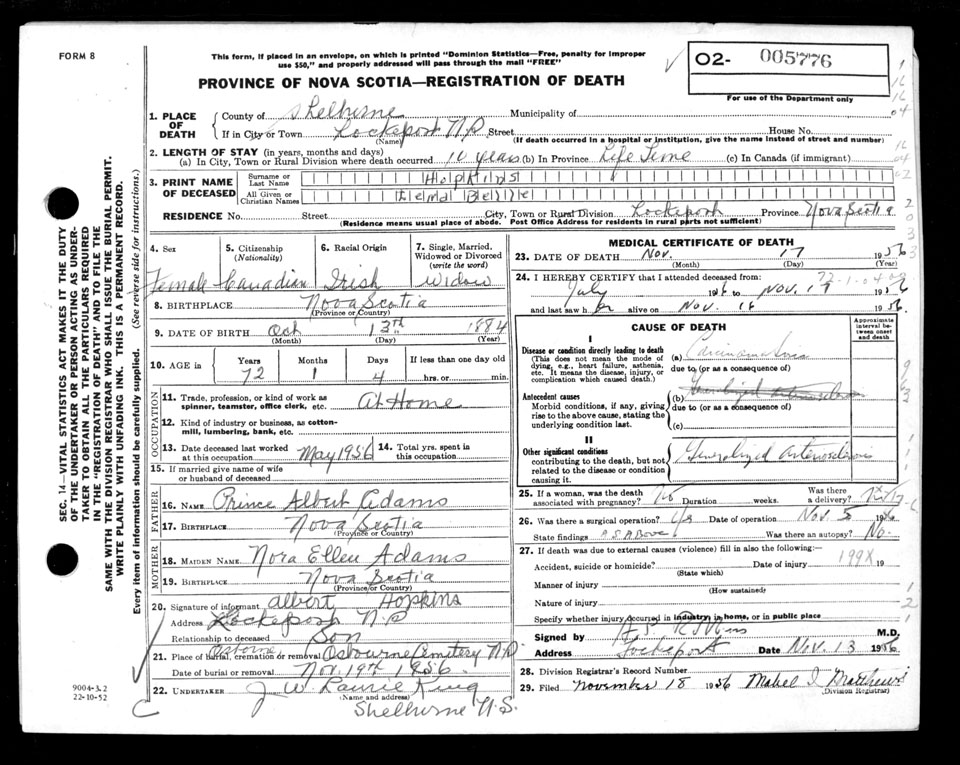 FORM 8
This form, if placed in an envelope, on which is printed "Dominion Statistics—Free, penalty for improper
use $50," and properly addressed will pass through the mail "FREE"
O2- 005776
For use of the Department only
PROVINCE OF NOVA SCOTIA—REGISTRATION OF DEATH
1. PLACE OF DEATH
County of Shelburne Municipality of
If in City or Town Lockeport N.S Street House No.
(Name) (If death occurred in a hospital or institution, give the name instead of street and number)
2. LENGTH OF STAY (in years, months and days)
(a) In City, Town or Rural Division where death occurred 10 years (b) In Province Life Time (c) In Canada (if immigrant)
3. PRINT NAME OF DECEASED
Surname or Last Name Hopkins
All Given or Christian Names Lema Belle
RESIDENCE No. Street City, Town or Rural Division Lockeport Province Nova Scotia
(Residence means usual place of abode. Post Office Address for residents in rural parts not sufficient)
4. Sex 5. Citizenship (Nationality) 6. Racial Origin 7. Single, Married, Widowed or Divorced (write the word)
Female Canadian Irish Widow
8. BIRTHPLACE Nova Scotia
(Province or Country)
9. DATE OF BIRTH Oct 13th 1884
(Month) (Day) (Year)
10. AGE in Years Months Days If less than one day old
72 1 4 hrs. or min.
OCCUPATION
11. Trade, profession, or kind of work as spinner, teamster, office clerk, etc. At Home
12. Kind of industry or business, as cotton-mill, lumbering, bank, etc.
13. Date deceased last worked at this occupation May 1956 14. Total yrs. spent in this occupation
15. If married give name of wife or husband of deceased
FATHER
16. NAME Prince Albert Adams
17. BIRTHPLACE Nova Scotia
(Province or Country)
MOTHER
18. MAIDEN NAME Nora Ellen Adams
19. BIRTHPLACE Nova Scotia
(Province or Country)
20. Signature of informant Albert Hopkins
Address Lockeport N.S
Relationship to deceased Son
Osborne
21. Place of burial, cremation or removal Osbourne Cemetery N.S.
Date of burial or removal Nov. 19th 1956
22. UNDERTAKER J. W. Laurie King
(Name and address)
Shelburne N.S.
MEDICAL CERTIFICATE OF DEATH
23. DATE OF DEATH Nov. 17 1956
(Month) (Day) (Year)
24. I HEREBY CERTIFY that I attended deceased from:
July 1956 to Nov. 17 1956
and last saw her alive on Nov. 16 1956.
CAUSE OF DEATH
Approximate interval between onset and death
I
Disease or condition directly leading to death
(This does not mean the mode of dying, e.g., heart failure, asthenia, etc. It means the disease, injury, or complication which caused death.)
(a) Carcinomatosis
due to (or as a consequence of)
Antecedent causes
Morbid conditions, if any, giving rise to the above cause, stating the underlying condition last.
(b) Generalized arteriosclerosis
due to (or as a consequence of)
(c)
II
Other significant conditions
contributing to the death, but not related to the disease or condition causing it.
Generalized arteriosclerosis
25. If a woman, was the death associated with pregnancy? No Duration weeks. Was there a delivery?
26. Was there a surgical operation? Yes Date of operation Nov. 5 1956
State findings as above Was there an autopsy? No
27. If death was due to external causes (violence) fill in also the following:—
Accident, suicide or homicide? Date of injury 199X 19
(State which)
Manner of injury
(How sustained)
Nature of injury
Specify whether injury occurred in industry, in home, or in public place
Signed by M.D.
Address Lockeport Date Nov. 13 1956
28. Division Registrar's Record Number
29. Filed November 18 1956 Mabel I Matthews
(Division Registrar)
SEC. 14—VITAL STATISTICS ACT MAKES IT THE DUTY
OF THE UNDERTAKER OR PERSON ACTING AS UNDER-
TAKER TO OBTAIN ALL THE PARTICULARS REQUIRED
IN THE "REGISTRATION OF DEATH" AND TO FILE THE
SAME WITH THE DIVISION REGISTRAR WHO SHALL ISSUE THE BURIAL PERMIT.
WRITE PLAINLY WITH UNFADING INK. THIS IS A PERMANENT RECORD.
Every item of information should be carefully supplied. (See reverse side for instructions.)
9004-3.2
22-10-52
C